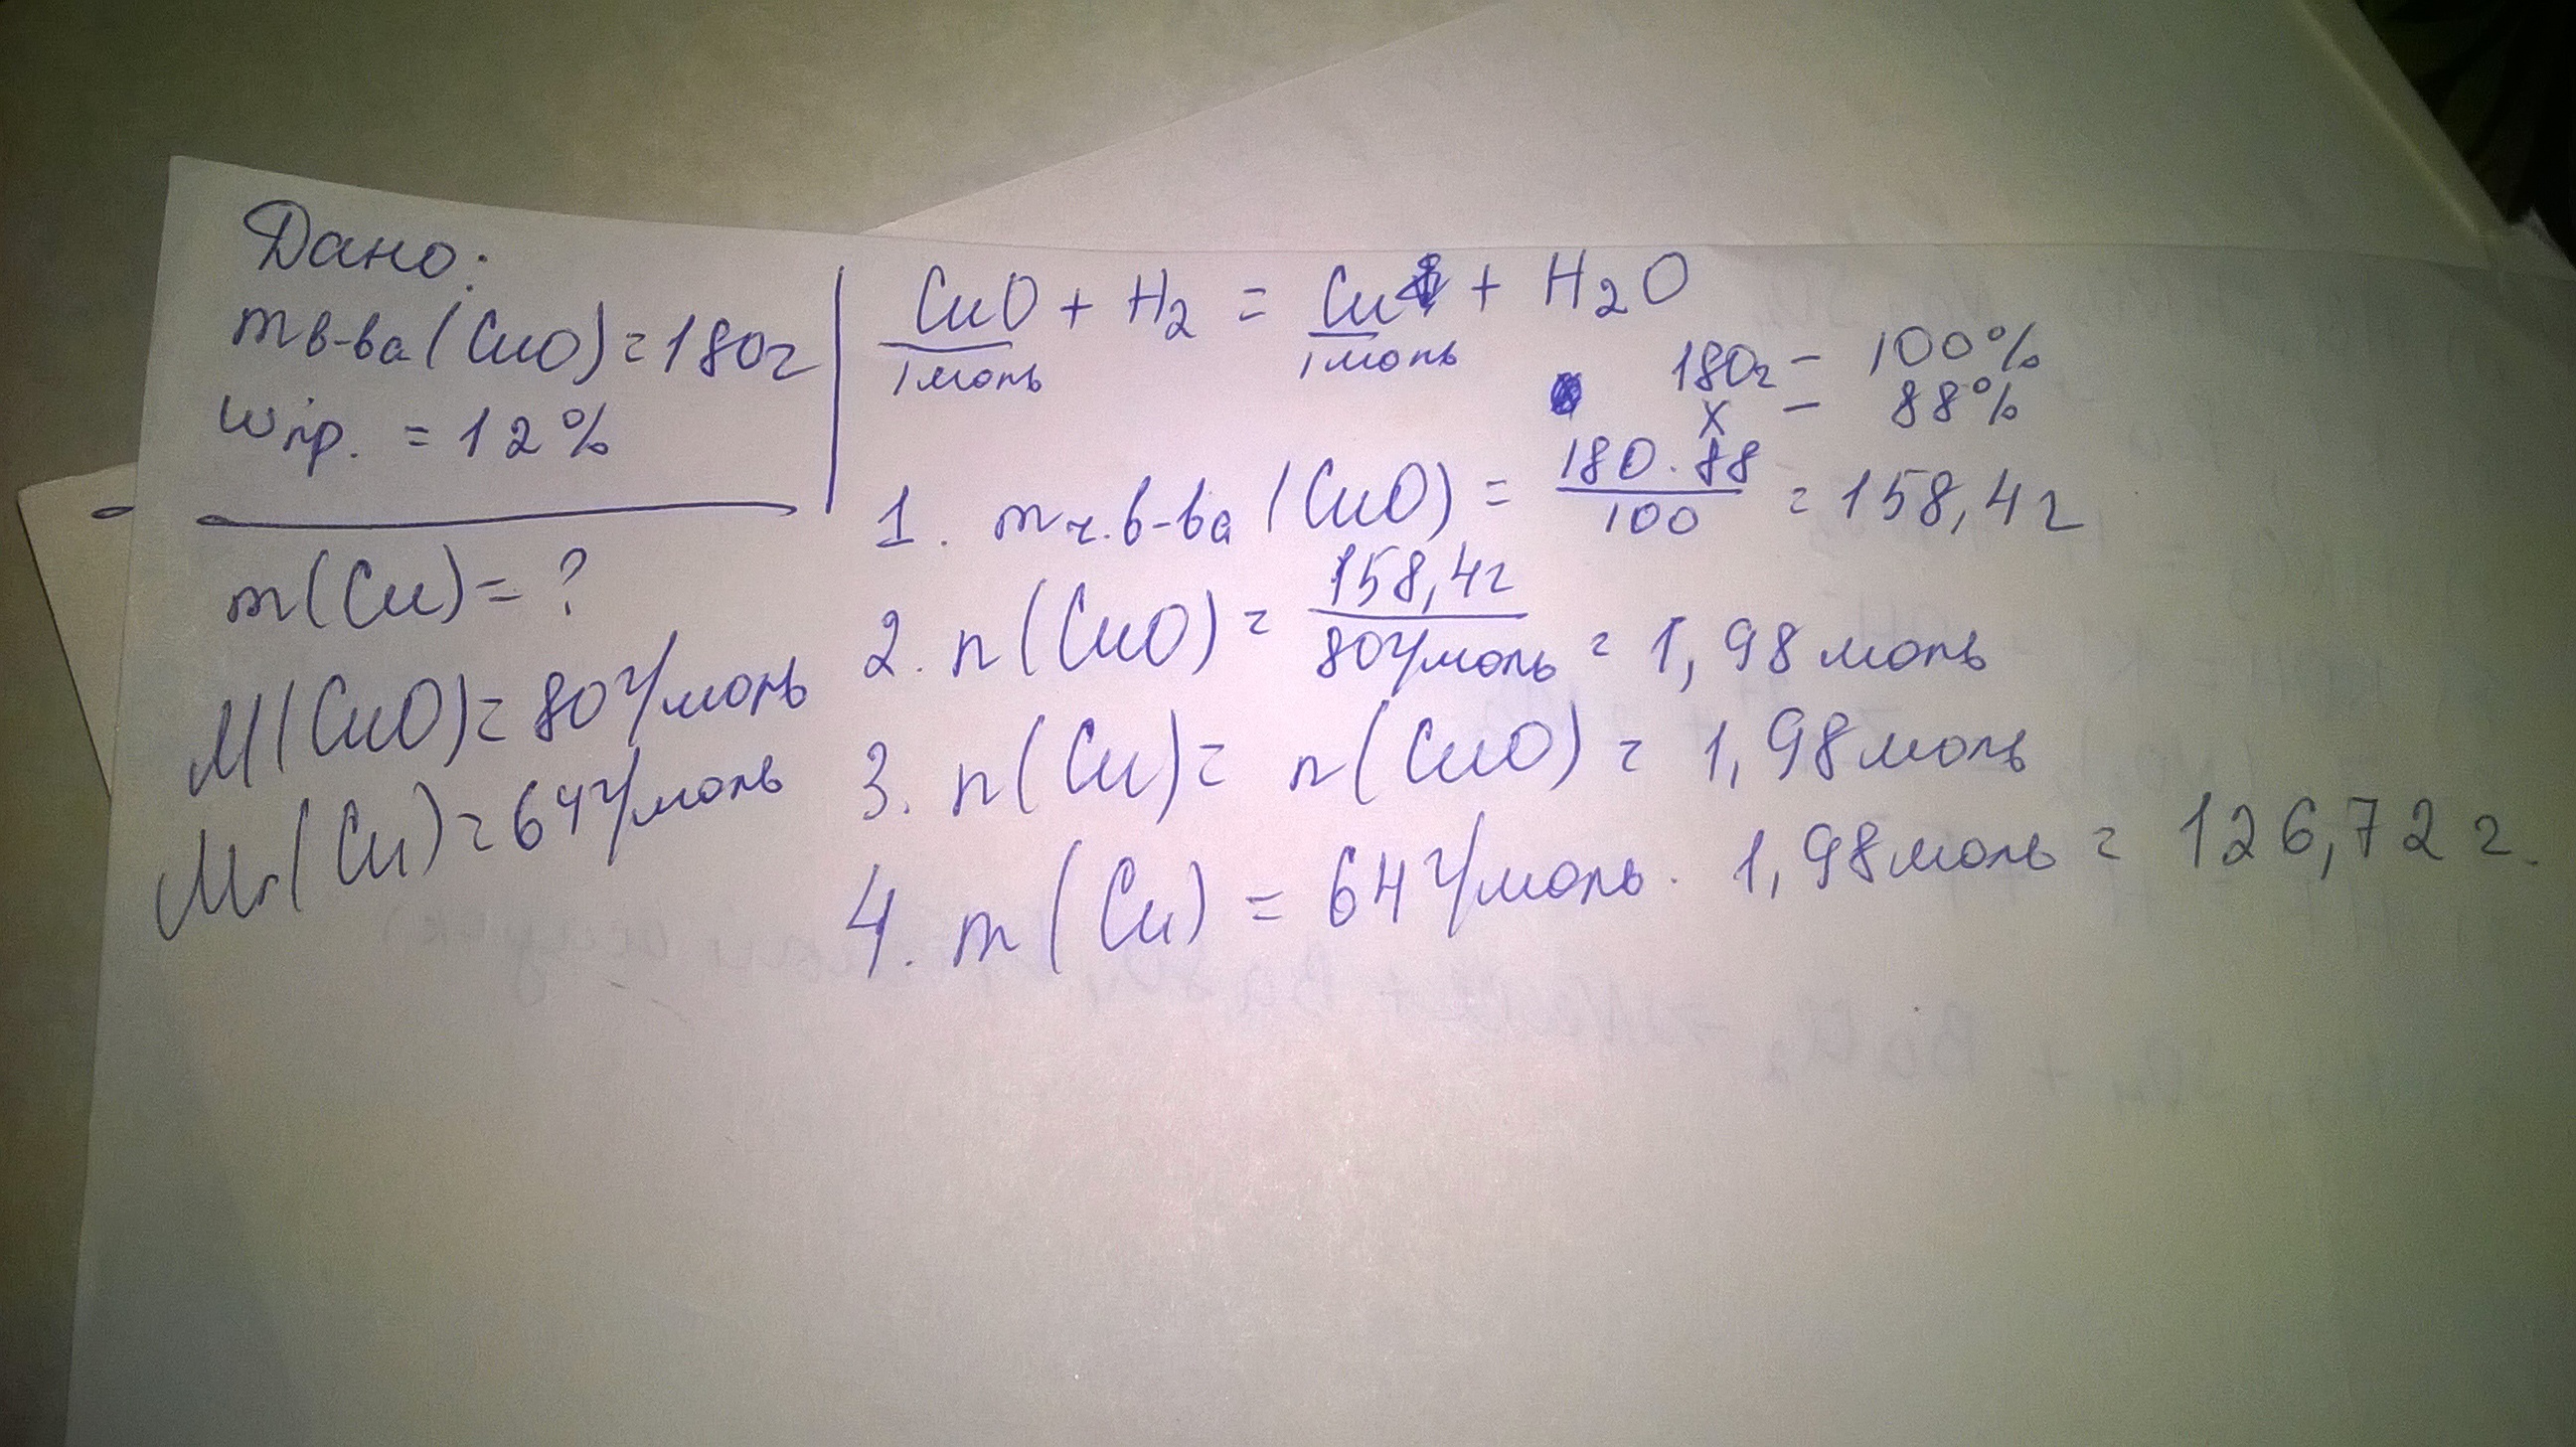 Дано:
mв-ва(CuO)=180г
wпр. = 12%
m(Cu)= ?
M(CuO)=80г/моль
Mr(Cu)=64г/моль
CuO + H2 = Cu + H2O
1моль 1моль
180г - 100%
x - 88%
1. mч.в-ва (CuO) = 180·88/100 = 158,4г
2. n(CuO) = 158,4г/80г/моль = 1,98моль
3. n(Cu)= n(CuO) = 1,98моль
4. m(Cu) = 64г/моль · 1,98моль = 126,72г.